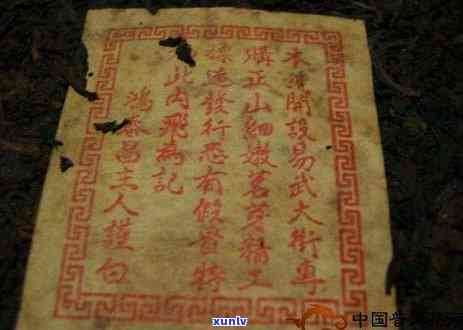 本號開設易武大街專
購正山細嫩茗芽精工
揉造發行恐有假冒特
此內飛為記
鴻泰昌主人謹白
中国普
xunlv